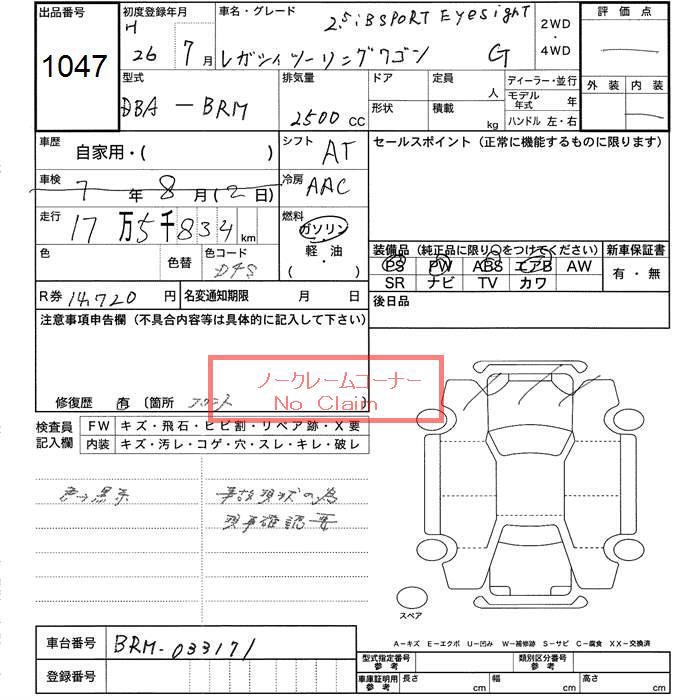 出品番号
1047
初度登録年月
H 26 7月
車名・グレード
2.5i B SPORT EyeSight
レガシィツーリングワゴン G
2WD・4WD
評価点
外装 内装
型式
DBA - BRM
排気量
2500 CC
ドア
形状
定員 人
積載 kg
ディーラー・並行
モデル年式 年
ハンドル 左・右
車歴
自家用・( )
シフト AT
車検
7年 8月 (2日)
冷房 AAC
走行
17万5千834km
燃料
ガソリン・軽油( )
色
色替
色コード D4S
R券 14,720円
名変通知期限 月 日
セールスポイント(正常に機能するものに限ります)
装備品(純正品に限り○をつけてください)
PS PW ABS エアB AW
SR ナビ TV カワ
新車保証書
有・無
後日品
注意事項申告欄(不具合内容等は具体的に記入して下さい)
ノークレームコーナー
No Claim
修復歴 有 〔箇所 フロント
検査員記入欄
FW キズ・飛石・ヒビ割・リペア跡・X要
内装 キズ・汚レ・コゲ・穴・スレ・キレ・破レ
事故現状の為
現車確認要
スペア
A-キズ E-エクボ U-凹み W-補修跡 S-サビ C-腐食 XX-交換済
車台番号 BRM-033171
登録番号
型式指定番号 参考
類別区分番号 参考
車庫証明用 参考
長さ cm 幅 cm 高さ cm